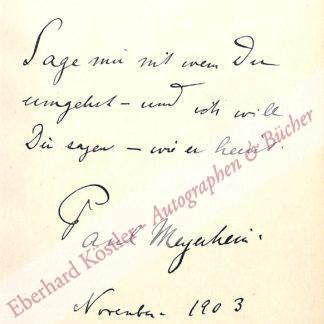 Sage mir mit wem Du
umgehst – und ich will
Dir sagen – wie er heisst.
Paul Meyerheim.
November 1903
Eberhard Köstler Autographen & Bücher